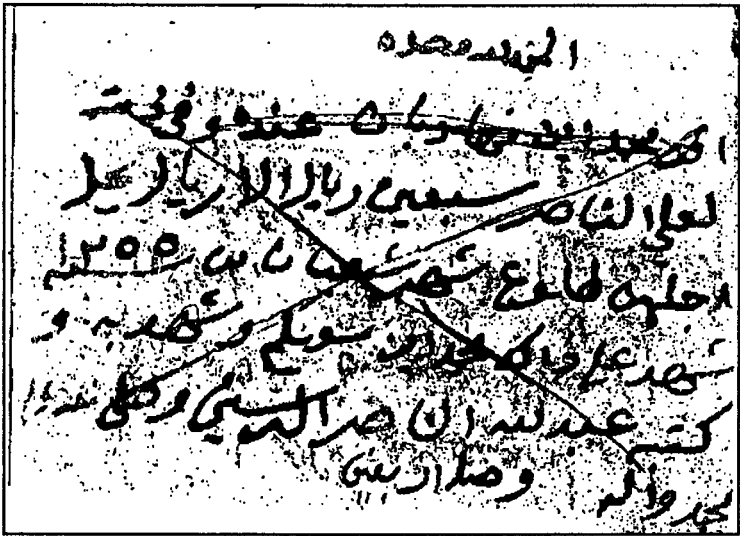 الحمد لله وحده
محمد ابن بان عنده وفي ذمته
لعلي الناصر سبعين ريال الا ريال يحل
اجلهن طلوع شهر شعبان سنة ١٢٥٥
شهد على ذلك محمد ابن سويلم وشهد به و
كتبه عبدالله الناصر الرسيني وصلى الله
محمد واله